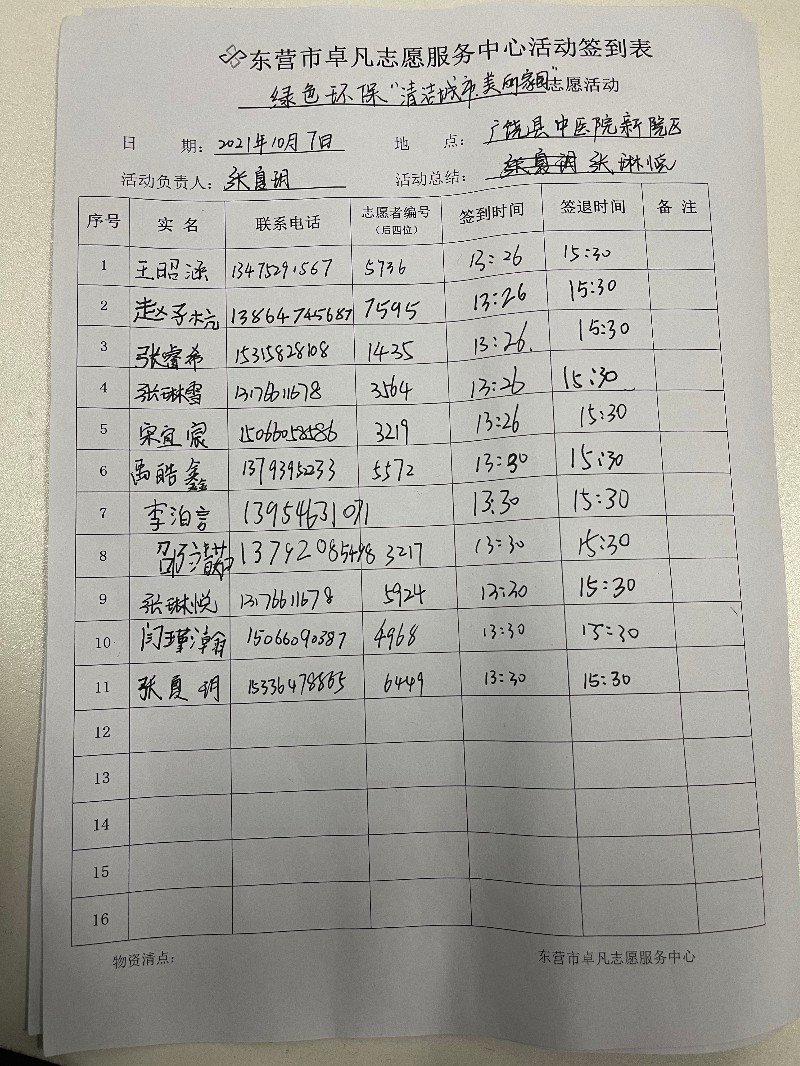 东营市卓凡志愿服务中心活动签到表
绿色环保"清洁城市美丽家园"志愿活动
日 期: 2021年10月7日 地 点: 广饶县中医院新院区
活动负责人: 张夏玥 活动总结: 张夏玥 张琳悦
序号 实 名 联系电话 志愿者编号(后四位) 签到时间 签退时间 备 注
1 王昭涵 13475291567 5736 13:26 15:30
2 赵子杭 13864745687 7595 13:26 15:30
3 张睿希 15315828108 1435 13:26. 15:30
4 张琳雪 13176611678 3564 13:26 15:30
5 宋宜宸 15066058586 3219 13:26 15:30
6 禹皓鑫 1379395233 5572 13:30 15:30
7 李泊言 13954631071 13:30 15:30
8 邵 13792085498 3217 13:30 15:30
9 张琳悦 13176611678 5924 13:30 15:30
10 闫瑾瀚 15066090387 4968 13:30 15:30
11 张夏玥 15336478865 6449 13:30 15:30
12
13
14
15
16
物资清点: 东营市卓凡志愿服务中心